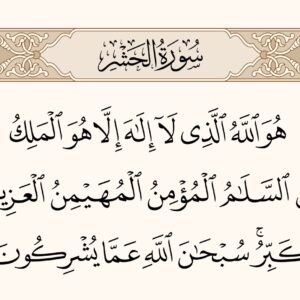 سُورَةُ الحَشْرِ
هُوَ ٱللَّهُ ٱلَّذِى لَآ إِلَٰهَ إِلَّا هُوَ ٱلْمَلِكُ
ٱلسَّلَٰمُ ٱلْمُؤْمِنُ ٱلْمُهَيْمِنُ
سُبْحَٰنَ ٱللَّهِ عَمَّا يُشْرِكُونَ